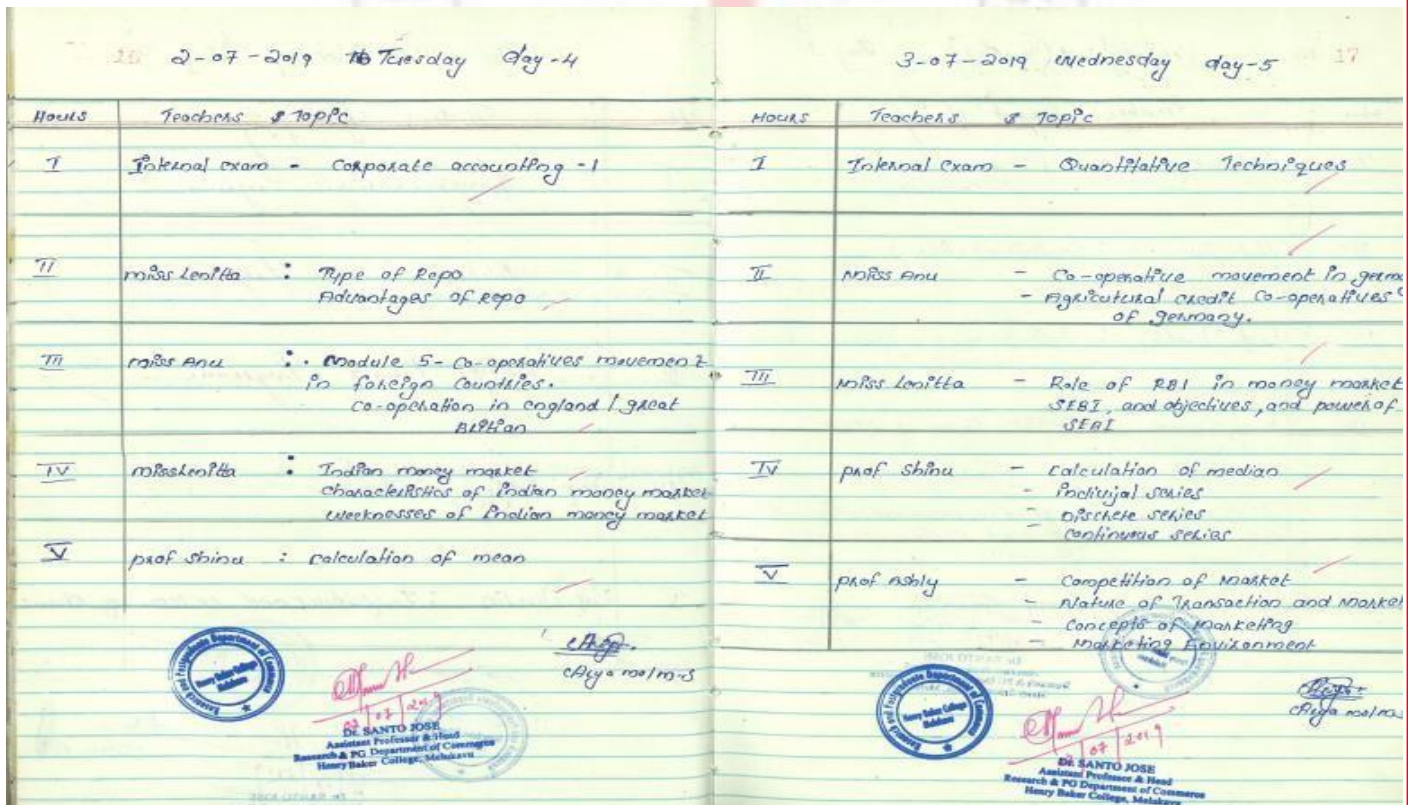 16 2-07-2019 Tuesday day-4
Hours Teachers & Topic
I Internal exam - Corporate accounting -1
II miss Lenitta : Type of Repo
Advantages of repo
III miss Anu : Module 5- Co-operatives movement
in foreign Countries.
co-operation in england / great
Britian
IV miss Lenitta : Indian money market
characteristics of indian money market
weeknesses of indian money market
V prof shinu : calculation of mean
Research and Postgraduate Department of Commerce
Henry Baker College
Melukavu
02/07/2019
Dr. SANTO JOSE
Assistant Professor & Head
Research & PG Department of Commerce
Henry Baker College, Melukavu
3-07-2019 wednesday day-5 17
Hours Teachers & Topic
I Internal exam - Quantitative Techniques
II Miss Anu - Co-operative movement in germa
- Agricutural credit Co-operatives
of germany.
III Miss Lenitta - Role of RBI in money market
SEBI, and objectives, and power of
SEBI
IV prof shinu - calculation of median
- indivijal series
- Discrete series
- continuous series
V prof Ashly - Competition of Market
- Nature of Transaction and Market
- Concepts of Marketing
- Marketing Environment
Research and Postgraduate Department of Commerce
Henry Baker College
Melukavu
07/2019
Dr. SANTO JOSE
Assistant Professor & Head
Research & PG Department of Commerce
Henry Baker College, Melukavu